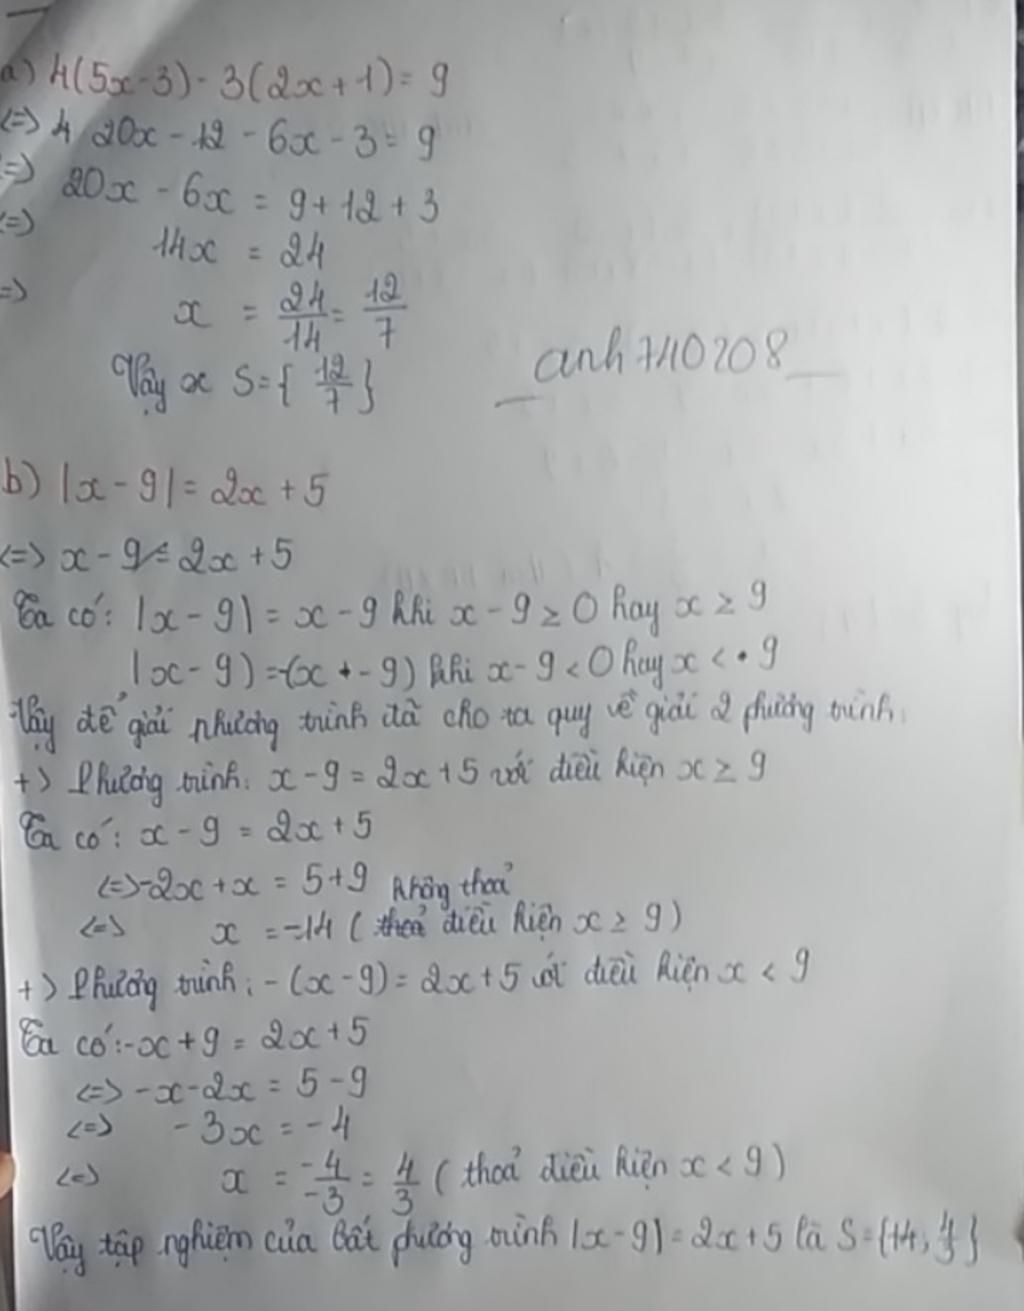 a) 4(5x-3) - 3(2x+1) = 9
<=> 4 20x - 12 - 6x - 3 = 9
=> 20x - 6x = 9 + 12 + 3
<=> 14x = 24
=> x = 24/14 = 12/7
Vậy x S = { 12/7 }
anh740208
b) |x - 9| = 2x + 5
<=> x - 9 = 2x + 5
Ta có: |x - 9| = x - 9 khi x - 9 ≥ 0 hay x ≥ 9
|x - 9) = -(x + - 9) khi x - 9 < 0 hay x < 9
Vậy để giải phương trình đã cho ta quy về giải 2 phương trình:
+) Phương trình: x - 9 = 2x + 5 với điều kiện x ≥ 9
Ta có: x - 9 = 2x + 5
<=> -2x + x = 5 + 9 không thoả
<=> x = -14 ( thoả điều kiện x ≥ 9 )
+) Phương trình: - (x - 9) = 2x + 5 với điều kiện x < 9
Ta có: -x + 9 = 2x + 5
<=> -x - 2x = 5 - 9
<=> - 3x = - 4
<=> x = -4/-3 = 4/3 ( thoả điều kiện x < 9 )
Vậy tập nghiệm của bất phương trình |x - 9| = 2x + 5 là S = { 14, 4/3 }